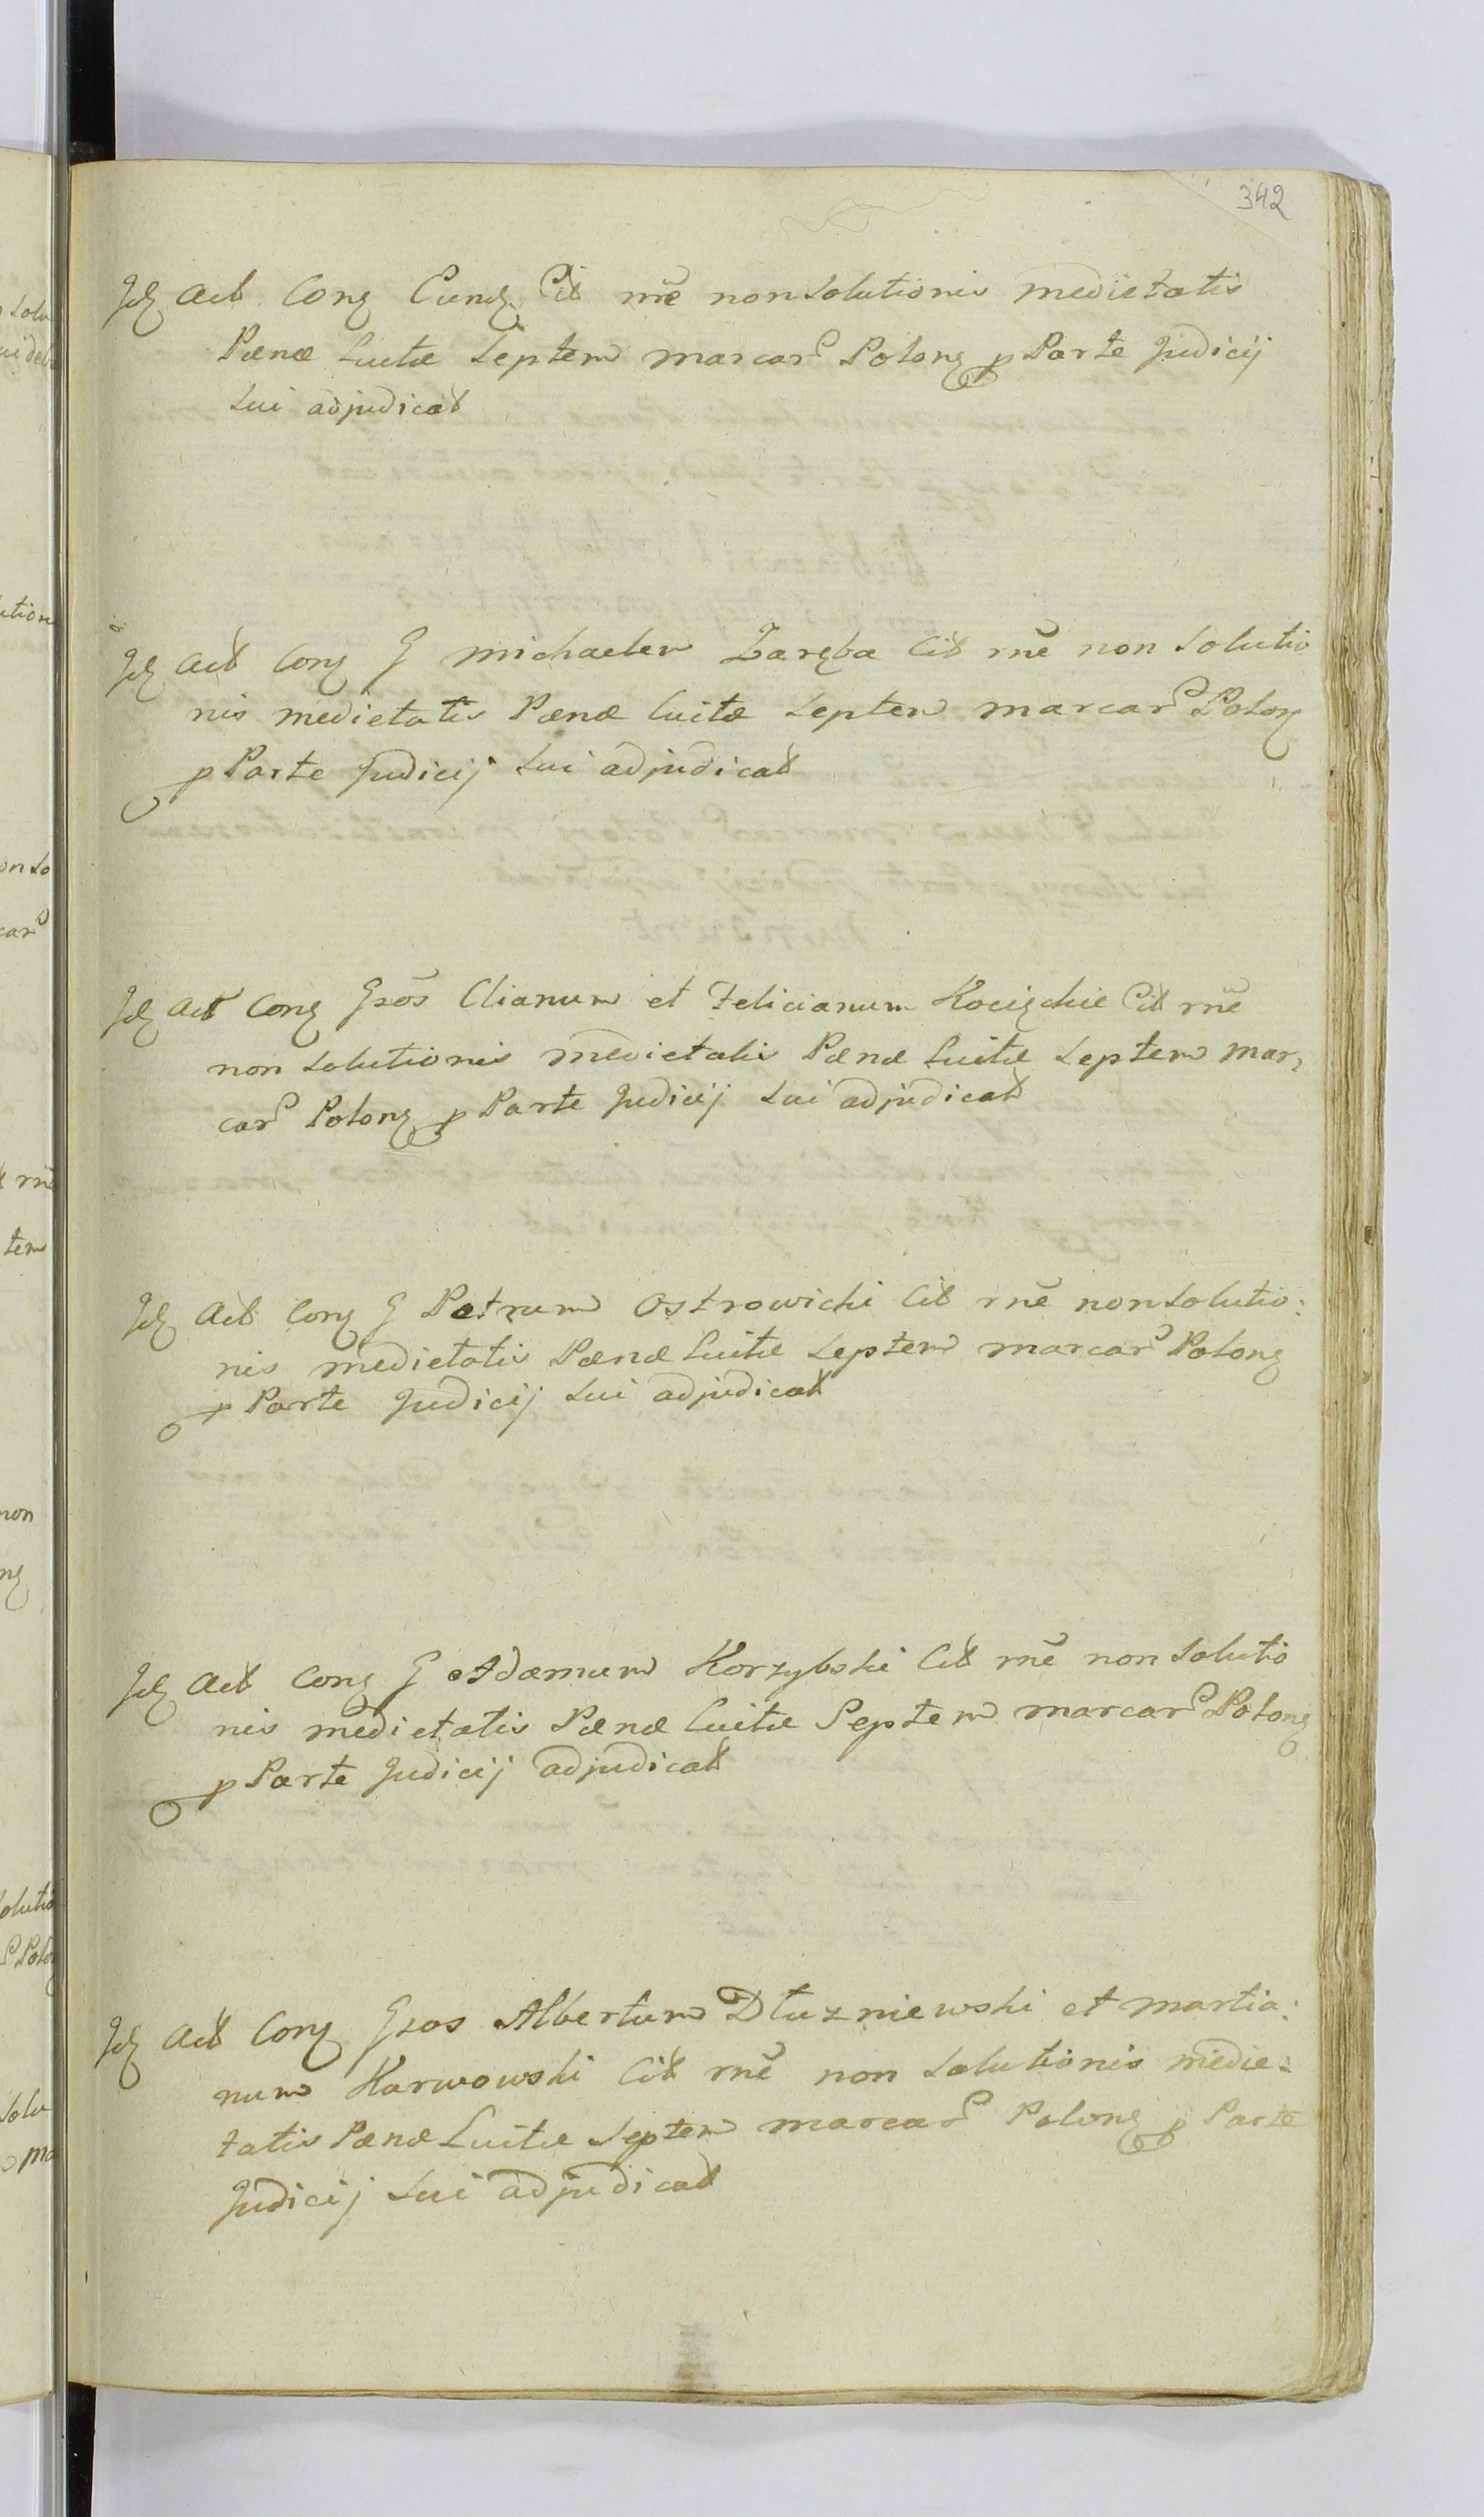 342
Id Act Cong Eund. Cit rñe non solutionis medietatis
Pænæ luitæ Septem marcar Polong p Parte Judicij
sui adjudicat
Id Act Cong G Michaelem Zaręba Cit rñe non solutio
nis medietatis Pænæ luitæ septem marcar Polong
p Parte Judicij sui adjudicat
Id Act Cong Gsos Elianum et Felicianum Kocięckie Cit rñe
non solutionis medietatis Pænæ luitæ septem mar,
car Polong p Parte Judicij sui adjudicat
Id Act Cong G Petrum Ostrowicki Cit rñe non solutio:
nis medietatis Pænæ luitæ septem marcar Polong
p Parte Judicij sui adjudicat
Id Act Cong G Adamum Korzybski Cit rñe non solutio
nis medietatis Pænæ luitæ Septem marcar Polong
p Parte Judicij adjudicat
Id Act Cong Gsos Albertum Dłuzniewski et Martia:
num Karwowski Cit rñe non solutionis medie:
tatis Pænæ Luitæ septem marcar Polong p Parte
Judicij sui adjudicat